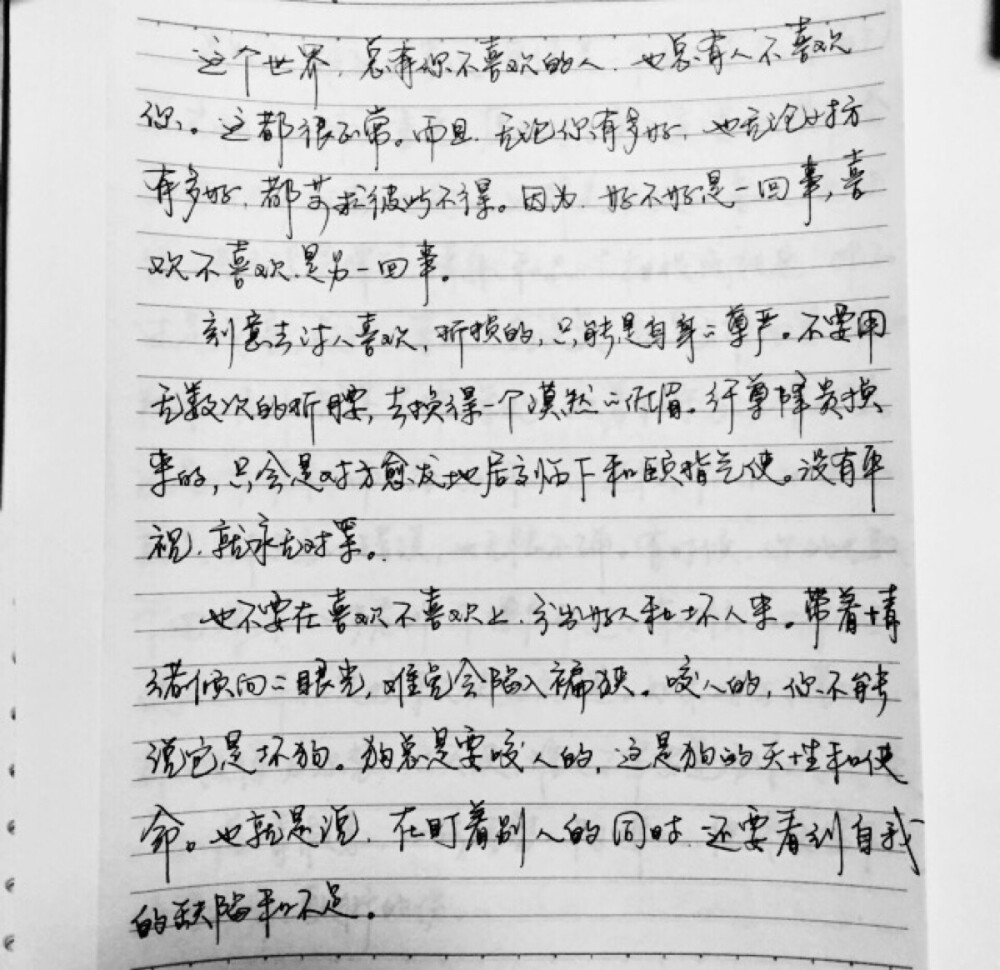 这个世界，总有你不喜欢的人，也总有人不喜欢
你。这都很正常。而且，无论你有多好，也无论对方
有多好，都苛求彼此不得。因为，好不好是一回事，喜
欢不喜欢是另一回事。
刻意去讨人喜欢，折损的，只能是自身的尊严。不要用
无数次的折腰，去换得一个漠然的低眉。纡尊降贵换
来的，只会是对方愈发地居高临下和颐指气使。没有平
视，就永无对等。
也不要在喜欢不喜欢上，分出好人和坏人来。带着情
绪倾向的眼光，难免会陷入褊狭。咬人的，你不能
说它是坏狗。狗总是要咬人的，这是狗的天性和使
命。也就是说，在盯着别人的同时，还要看到自我
的缺陷和不足。